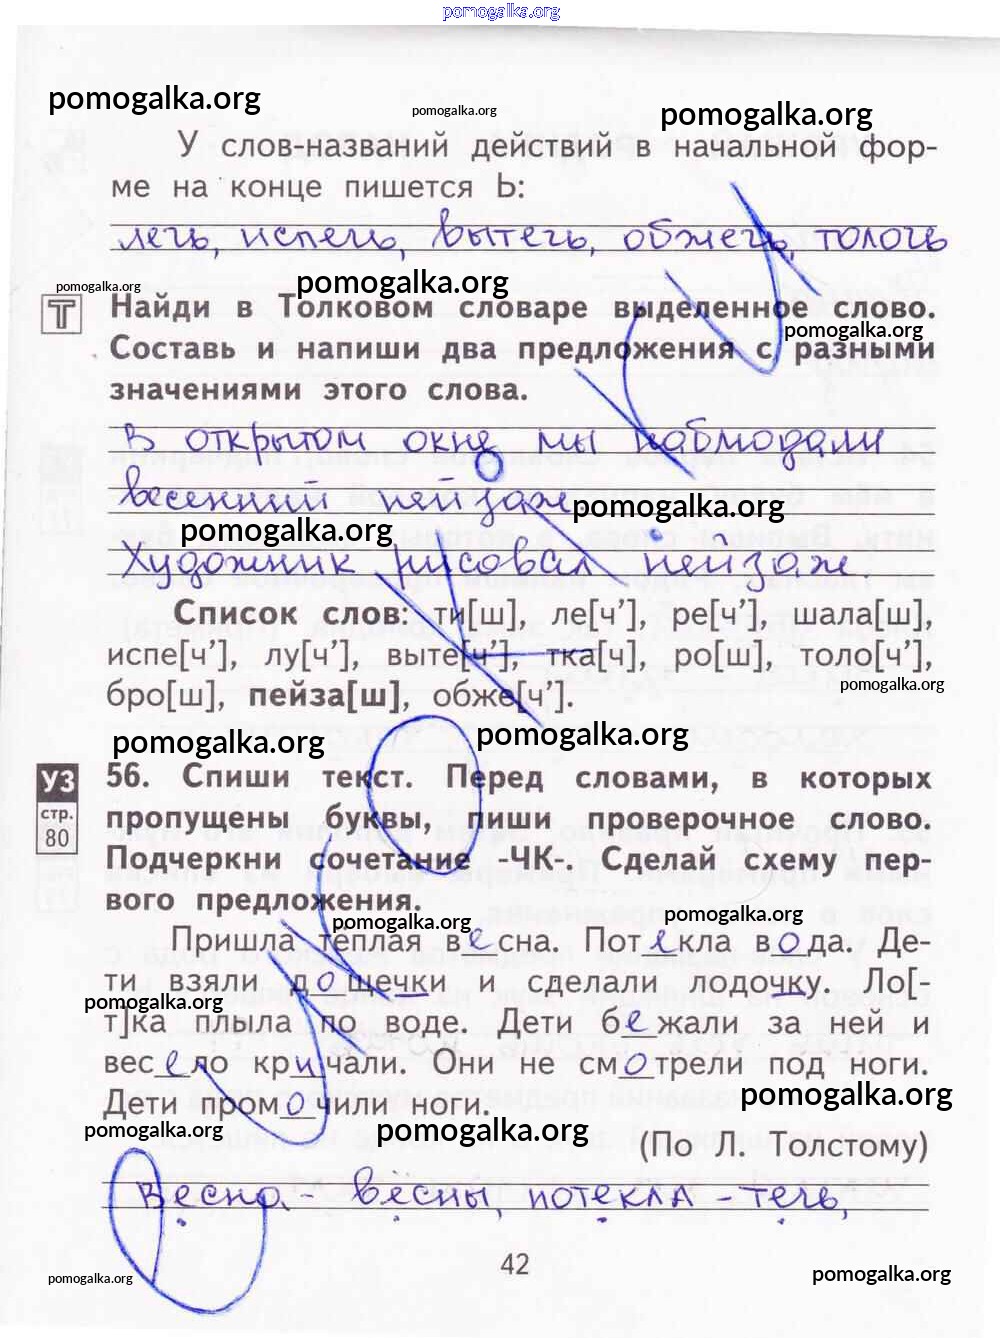 pomogalka.org
pomogalka.org
pomogalka.org
pomogalka.org
У слов-названий действий в начальной фор-
ме на конце пишется Ь:
лечь, испечь, вытечь, обжечь, толочь
pomogalka.org
pomogalka.org
Т Найди в Толковом словаре выделенное слово.
pomogalka.org
Составь и напиши два предложения с разными
значениями этого слова.
В открытом окне мы наблюдали
весенний пейзаж.
pomogalka.org
pomogalka.org
Художник рисовал пейзаж
Список слов: ти[ш], ле[ч’], ре[ч’], шала[ш],
испе[ч’], лу[ч’], выте[ч’], тка[ч], ро[ш], толо[ч’],
pomogalka.org
бро[ш], пейза[ш], обже[ч’].
pomogalka.org
pomogalka.org
УЗ
стр.
80
56. Спиши текст. Перед словами, в которых
пропущены буквы, пиши проверочное слово.
Подчеркни сочетание -ЧК-. Сделай схему пер-
вого предложения.
pomogalka.org
pomogalka.org
Пришла тёплая весна. Потекла вода. Де-
ти взяли дощечки и сделали лодочку. Ло[-
pomogalka.org
т]ка плыла по воде. Дети бежали за ней и
весело кричали. Они не смотрели под ноги.
pomogalka.org
Дети промочили ноги.
pomogalka.org
pomogalka.org
(По Л. Толстому)
Весна - вёсны, потекла - течь,
42
pomogalka.org
pomogalka.org